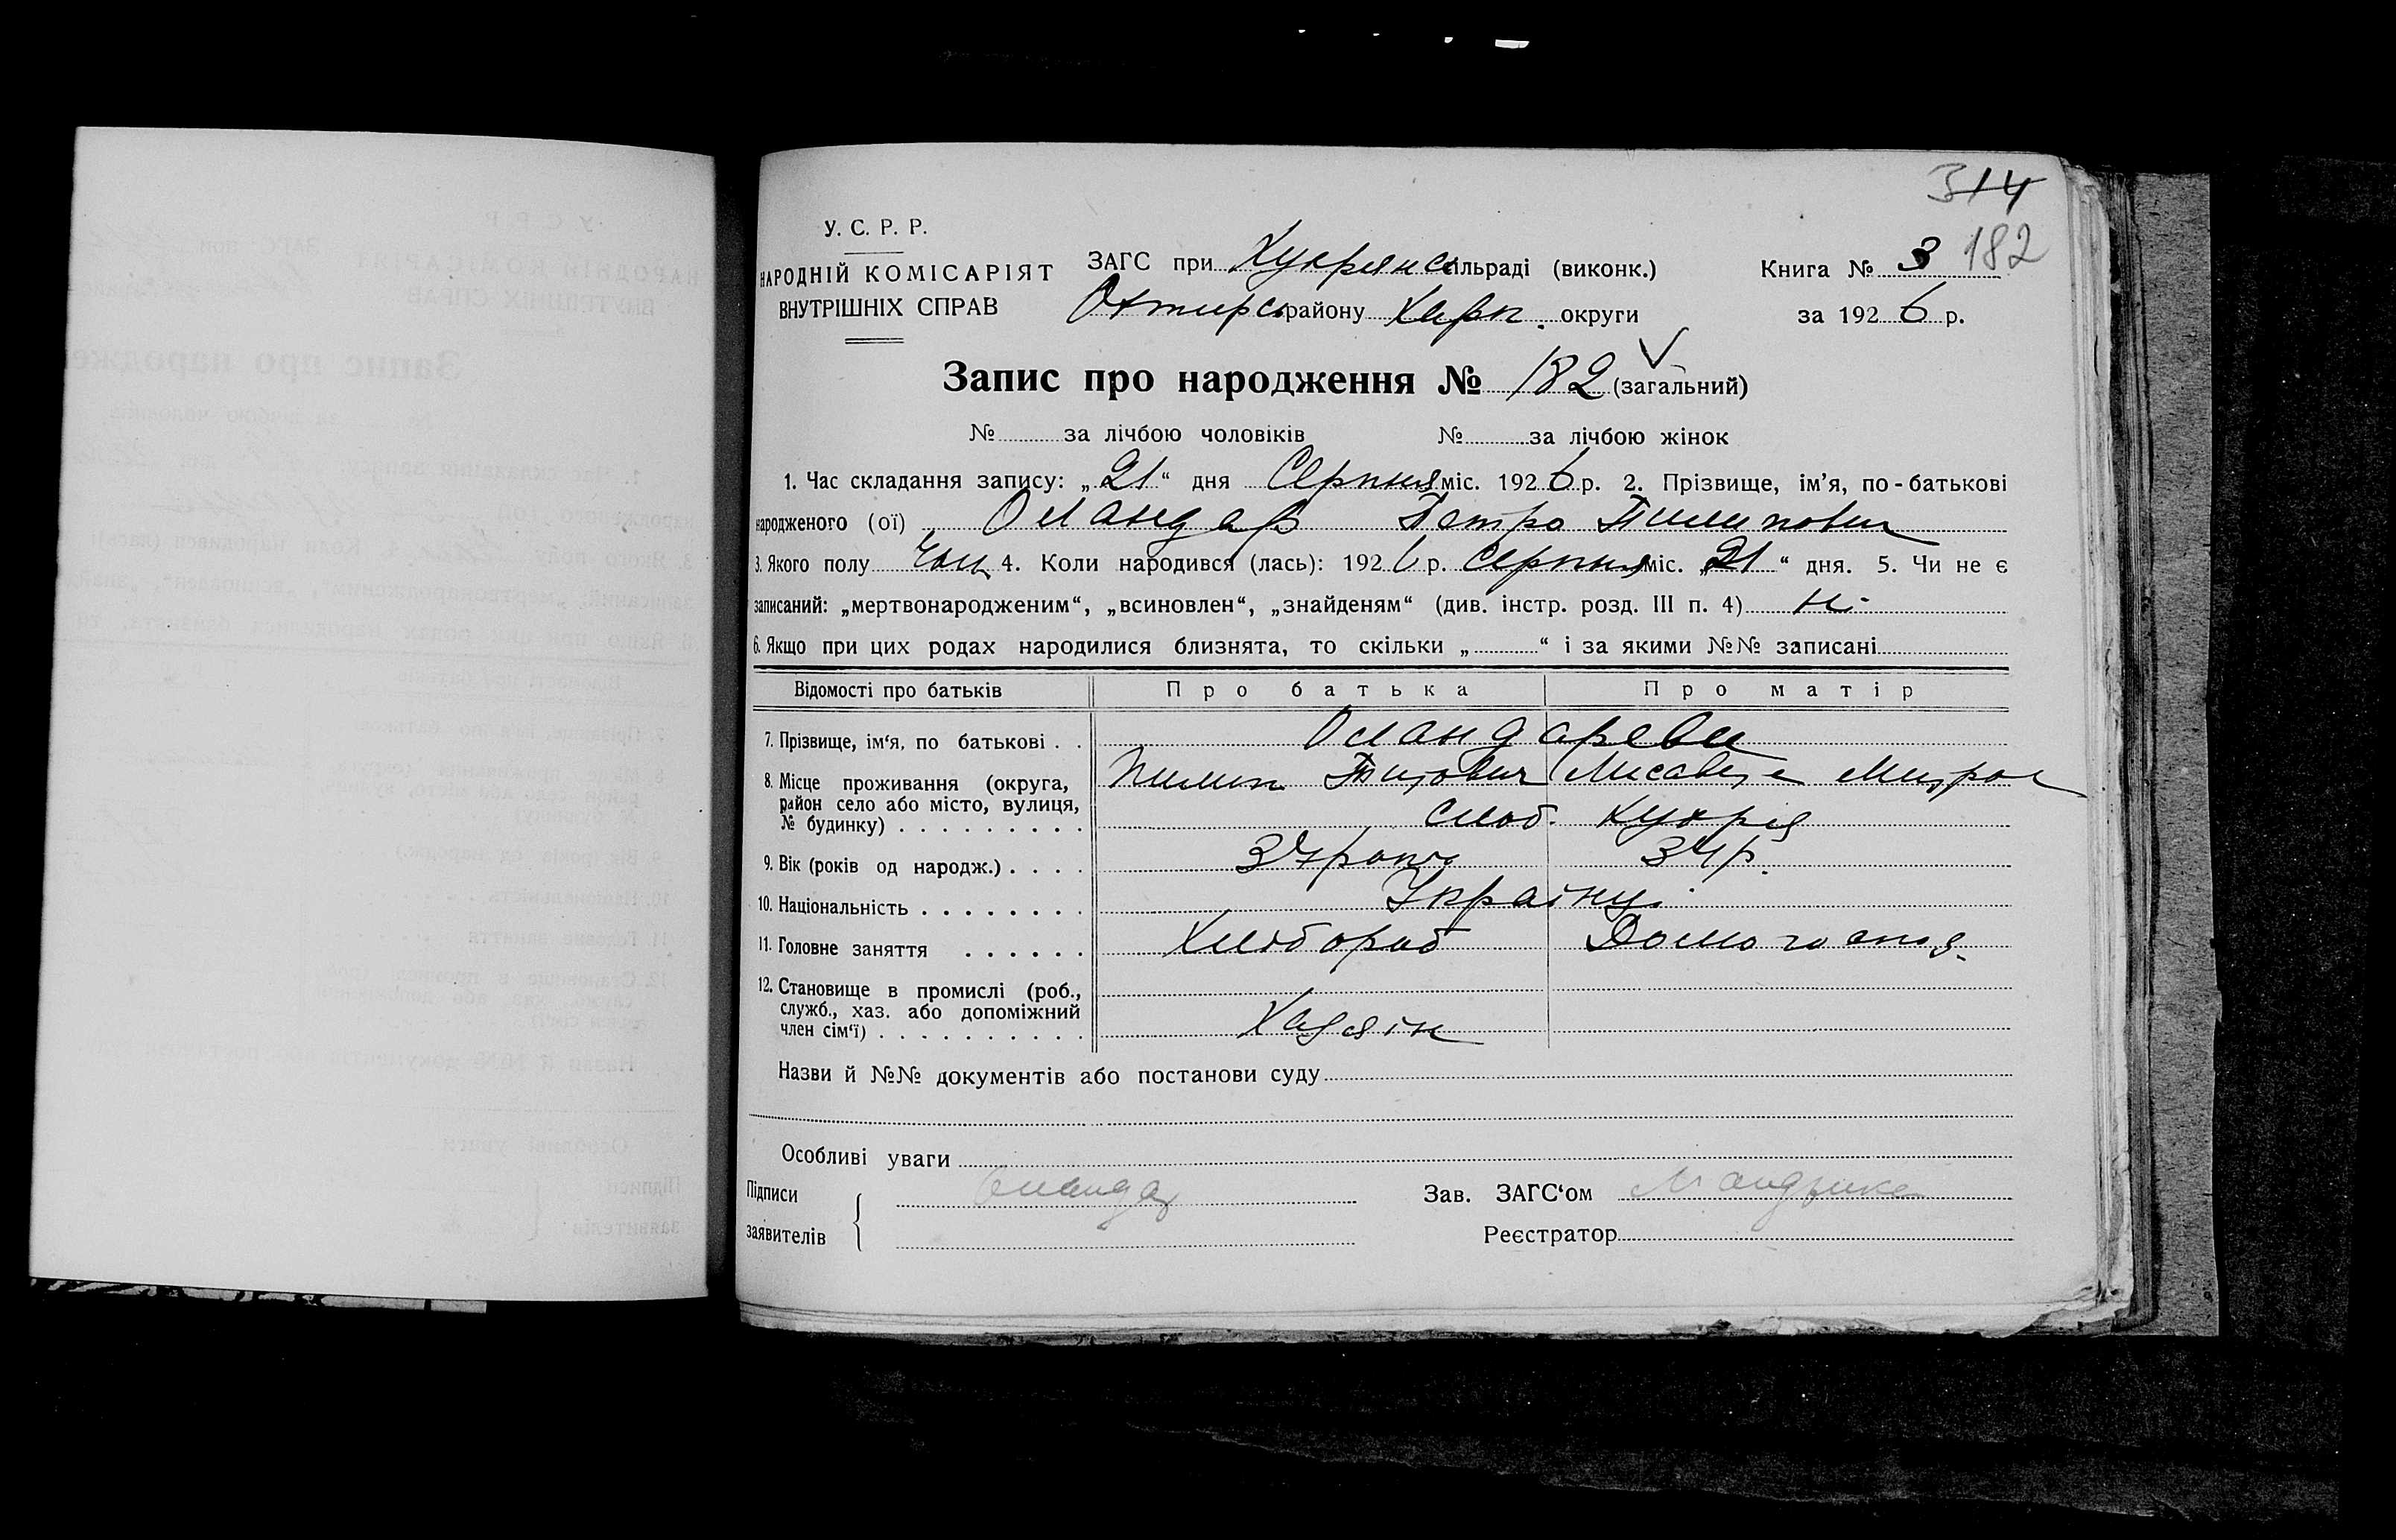 314
182
У. С. Р. Р.
НАРОДНІЙ КОМІСАРІЯТ
ВНУТРІШНІХ СПРАВ
ЗАГС при Хухрянс ільраді (виконк.)
Охтирс району Харк. округи
Книга № 3
за 1926 р.
Запис про народження № 182 (загальний)
№ за лічбою чоловіків № за лічбою жінок
1. Час складання запису: „21“ дня Серпня міс. 1926 р. 2. Прізвище, ім'я, по-батькові
народженого (ої) Оландар Петро Пилипович
3. Якого полу Чол. 4. Коли народився (лась): 1926 р. Серпня міс. „21“ дня. 5. Чи не є
записаний: „мертвонародженим“, „всиновлен“, „знайденям“ (див. інстр. розд. III п. 4) Ні
6. Якщо при цих родах народилися близнята, то скільки „ “ і за якими №№ записані
Відомості про батьків Про батька Про матір
7. Прізвище, ім'я, по батькові . . Оландареви
8. Місце проживання (округа, район село або місто, вулиця, № будинку) Пилип Титович
слоб. Хухря
9. Вік (років од народж.) 34р.
10. Національність Українці
11. Головне заняття Хлібороб Домогоспод.
12. Становище в промислі (роб., служб., хаз. або допоміжний член сім'ї) Хазяін
Назви й №№ документів або постанови суду
Особливі уваги
Підписи
заявителів
Оландар
Зав. ЗАГС'ом Мандрика
Реєстратор